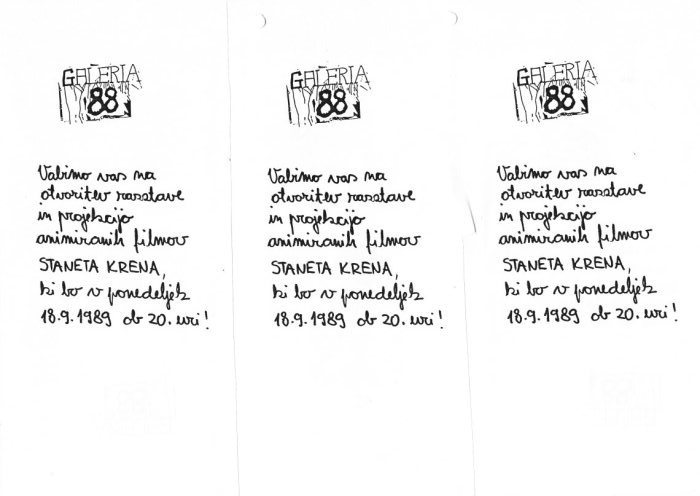 GALERIA
88
Vabimo vas na
otvoritev razstave
in projekcijo
animiranih filmov
STANETA KRENA,
ki bo v ponedeljek
18.9.1989 ob 20. uri!
GALERIA
88
Vabimo vas na
otvoritev razstave
in projekcijo
animiranih filmov
STANETA KRENA,
ki bo v ponedeljek
18.9.1989 ob 20. uri!
GALERIA
88
Vabimo vas na
otvoritev razstave
in projekcijo
animiranih filmov
STANETA KRENA,
ki bo v ponedeljek
18.9.1989 ob 20. uri!